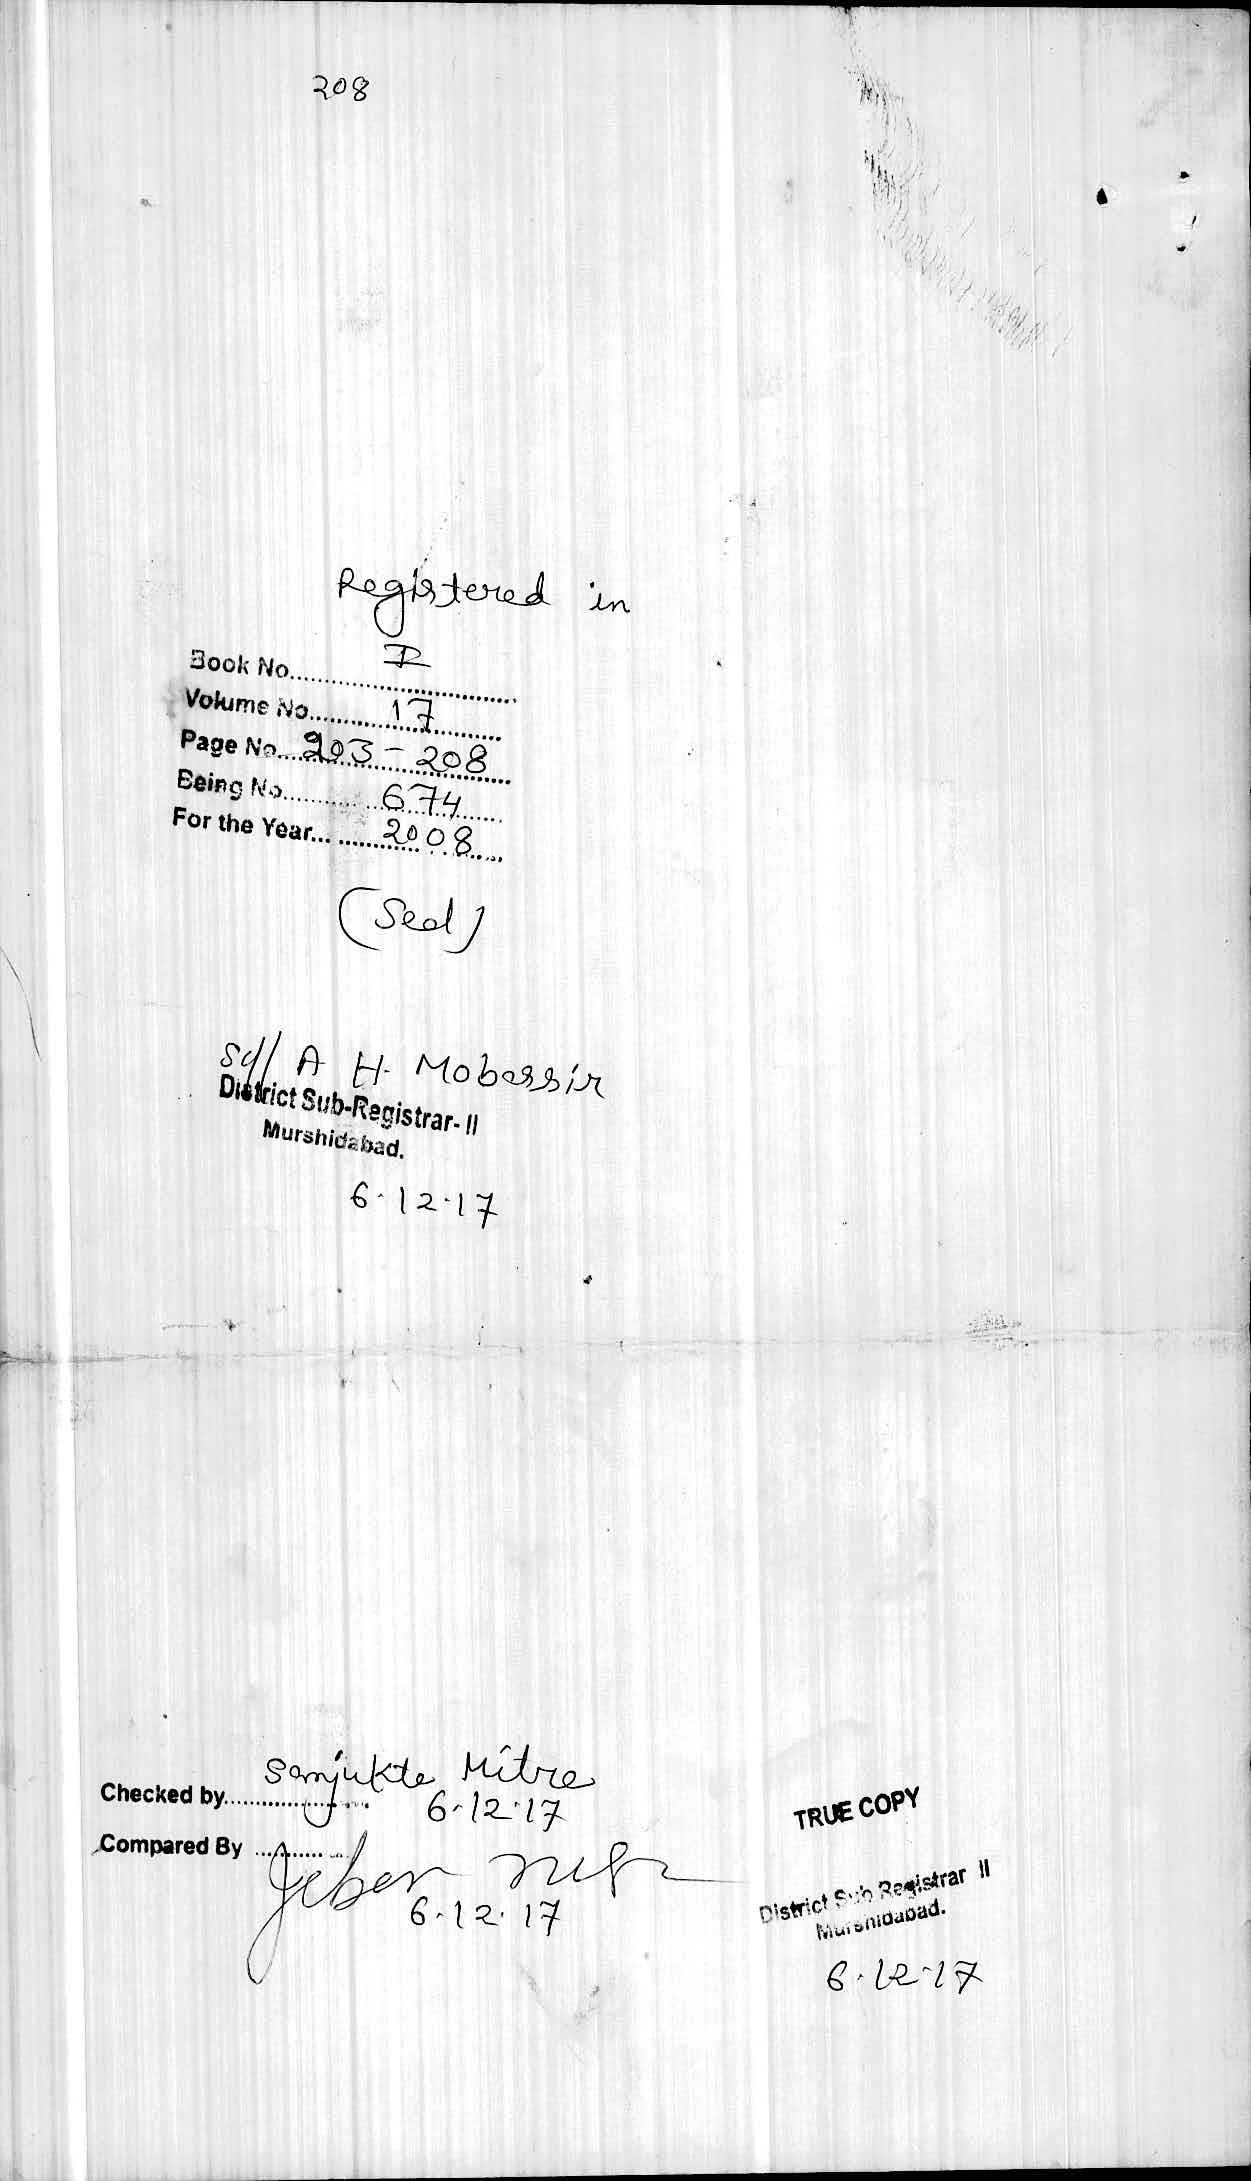 208
Registered in
Book No. I
Volume No. 17
Page No. 203 - 208
Being No. 674
For the Year... 2008
(Seal)
Sd// A H. Mobassir
District Sub-Registrar- II
Murshidabad.
6.12.17
Checked by Sanjukta Mitra
6.12.17
Compared By
6.12.17
TRUE COPY
District Sub Registrar II
Murshidabad.
6.12.17